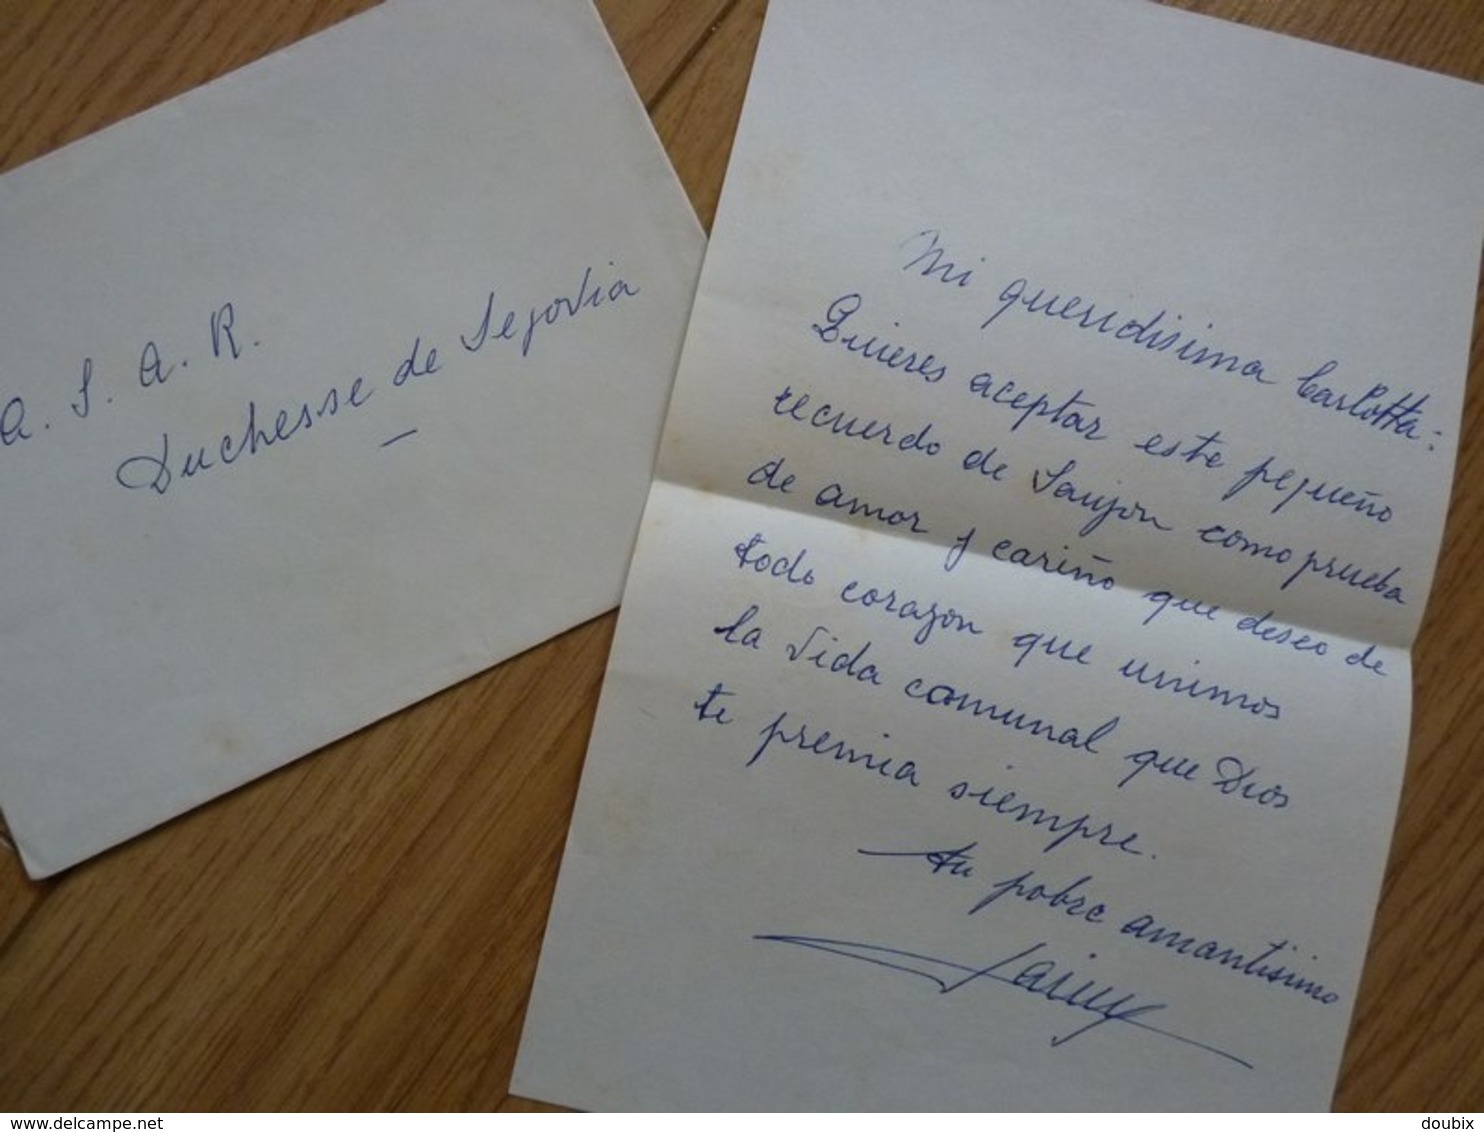 a. S. A. R.
Duchesse de Segovia
Mi queridisima Carlotta:
Quieres aceptar este pequeño
recuerdo de Saujon como prueba
de amor y cariño que deseo de
todo corazon que unimos
la vida comunal que Dios
te premia siempre.
tu pobre amantisimo
Jaime
www.delcampe.net
doubix